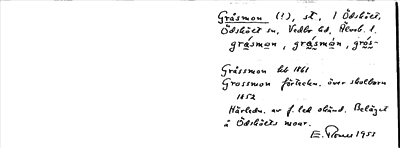 Gråsmon (!), st, i Ödsköls,
Ödsköls sn, Vedbo hd, Älvsb. l.
gråsmon, gråsmòn, grós-
Gråssmon bb 1861
Grossmon förtecken. över skolbarn
1852
Härledn. av f.led okänd. Beläget
å Ödsköls moar.
1951